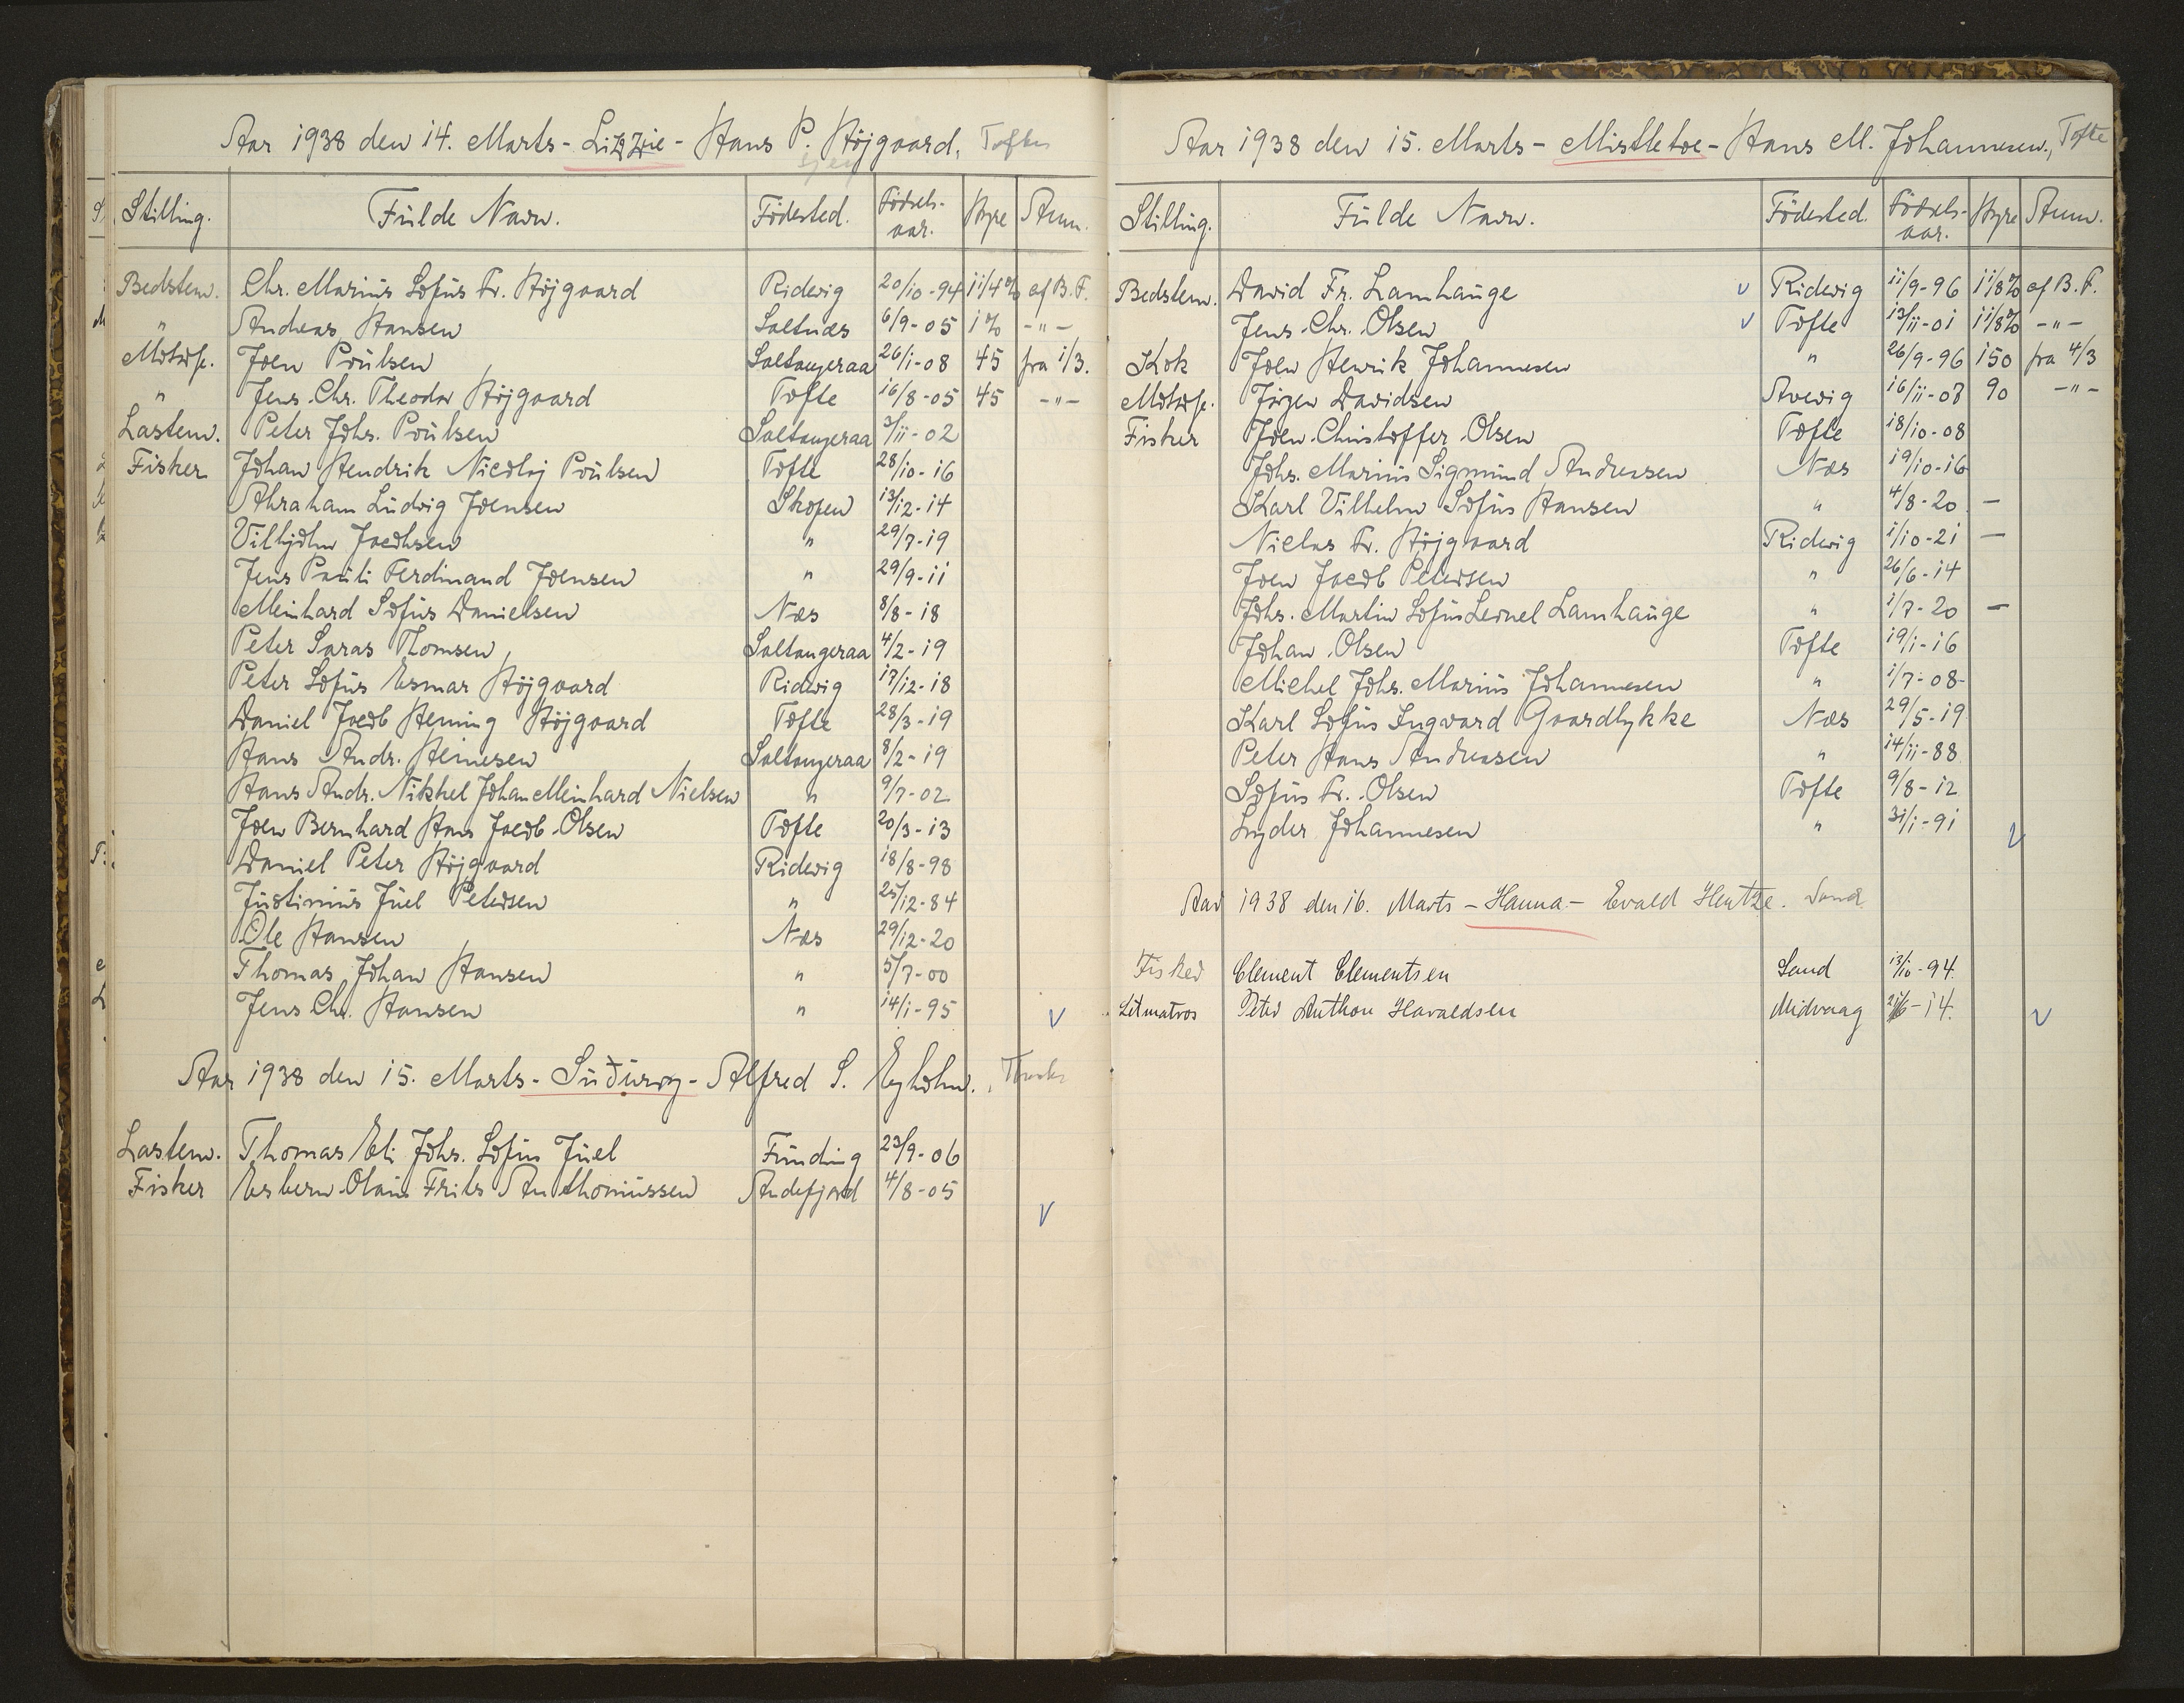 Aar 1938 den 14. Marts - Lizzie - Hans P. Höjgaard, Tofte
Stilling. Fulde Navn. Födested. Födsels-aar. Hyre Anm.
Bedstem. Chr. Marius Sofus Fr. Höjgaard Ridevig 20/10-94 1 1/4% af B.F.
" Andreas Hansen Saltnæs 6/9-05 1% -"-
Motorp. Joen Poulsen Saltangeraa 26/1-08 45 fra 1/3.
" Jens Chr. Theodor Höjgaard Tofte 16/8-05 45 -"-
Lastem. Peter Johs. Poulsen Saltangeraa 3/11-02
Fisker Johan Hendrik Nicolaj Poulsen Tofte 28/10-16
Abraham Ludvig Joensen Skopen 13/12-14
Vilhjolm Jacobsen " 29/7-19
Jens Pauli Ferdinand Joensen " 29/9-11
Meinhard Sofus Danielsen Næs 8/8-18
Peter Saras Thomsen Saltangeraa 4/2-19
Peter Sofus Esmar Höjgaard Ridevig 17/12-18
Daniel Jacob Hening Höjgaard Tofte 28/3-19
Hans Andr. Heinesen Saltangeraa 8/2-19
Hans Andr. Nikkel Johan Meinhard Nielsen " 9/7-02
Joen Bernhard Hans Jacob Olsen Tofte 20/3-13
Daniel Peter Höjgaard Ridevig 18/8-98
Justinus Juel Petersen " 25/12-84
Ole Hansen Næs 29/12-20
Thomas Johan Hansen " 5/7-00
Jens Chr. Hansen " 14/1-95
Aar 1938 den 15. Marts - Suðuroy - Alfred S. Eyholm.,
Lastem. Thomas Eli Johs. Sofus Juel Funding 23/9-06
Fisker Esbern Olaus Frits Anthoniussen Andefjord 4/8-05
Aar 1938 den 15. Marts - Mistletoe - Hans M. Johannesen., Tofte
Stilling. Fulde Navn. Födested. Födsels-aar. Hyre Anm.
Bedstem. David Fr. Lamhauge Ridevig 11/9-96 1 1/8% af B.F.
Jens Chr. Olsen Tofte 13/11-01 1 1/8% -"-
Kok Joen Henrik Johannesen " 26/9-96 150 fra 4/3
Motorp. Jörgen Davidsen Avevig 16/11-08 90 -"-
Fisker Joen Christoffer Olsen Tofte 18/10-08
Johs. Marius Sigmund Andreasen Næs 19/10-16
Karl Vilhelm Sofus Hansen " 4/8-20 -
Niclas Fr. Höjgaard Ridevig 1/10-21 -
Joen Jacob Petersen " 26/6-14
Johs. Martin Sofus Leonel Lamhauge " 1/7-20 -
Johan Olsen Tofte 19/1-16
Michel Johs. Marius Johannesen " 1/7-08
Karl Sofus Ingvard Gaardlykke Næs 29/5-19
Peter Hans Andreasen " 14/11-88
Sofus Fr. Olsen Tofte 9/8-12
Lyder Johannesen " 31/1-91
Aar 1938 den 16. Marts - Hanna - Evald Hentze. Sand
Fisker Clement Clementsen Sand 13/10-94
Letmatros Peter Anthon Haraldsen Midvaag 21/6-14.